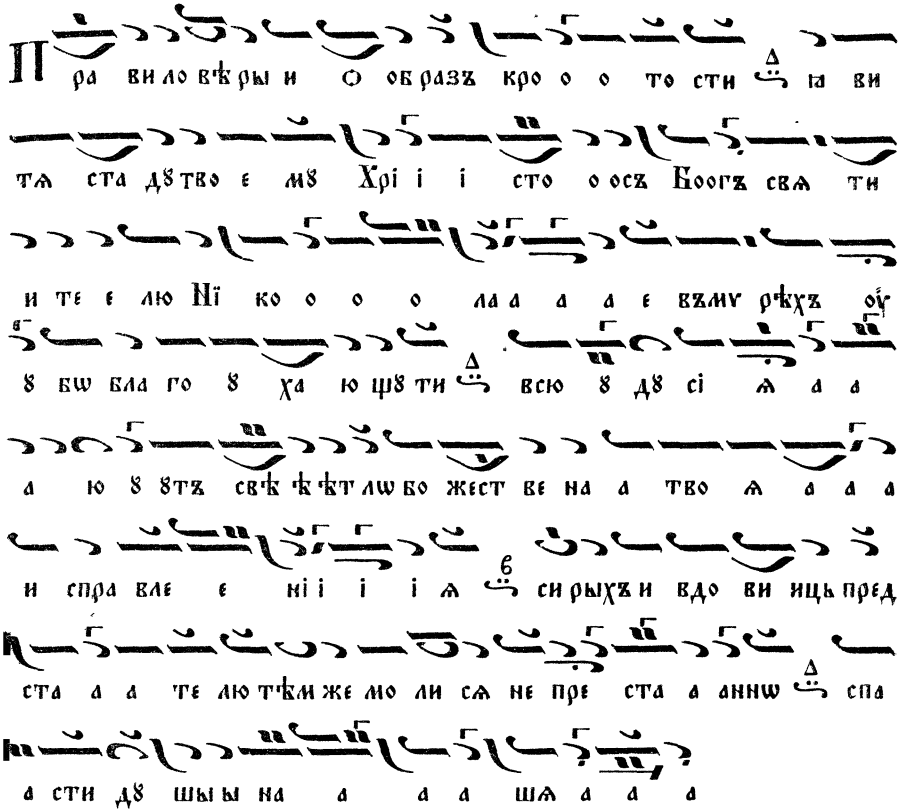 Пра ви ло вѣ ры и ѻ об разъ кро о о то сти ꙗ ви
тѧ ста дꙋ тво е мꙋ Хрі і і сто о осъ Боогъ свѧ ти
и те е лю Nї ко о о о ла а а а е въ мѵ рѣхъ оу҆
ꙋ бѡ бла го ꙋ ха ю щꙋ ти всю ꙋ дꙋ сі ѧ а а
а ю ꙋ ꙋтъ свѣ ѣ ѣт лѡ бо жест ве на а тво ѧ а а а
и спра вле е ні і і і ѧ си рыхъ и вдо ви иць пред
ста а а те лю тѣм же мо ли сѧ не пре ста а аннѡ спа
а сти дꙋ шы ы на а а а шѧ а а а